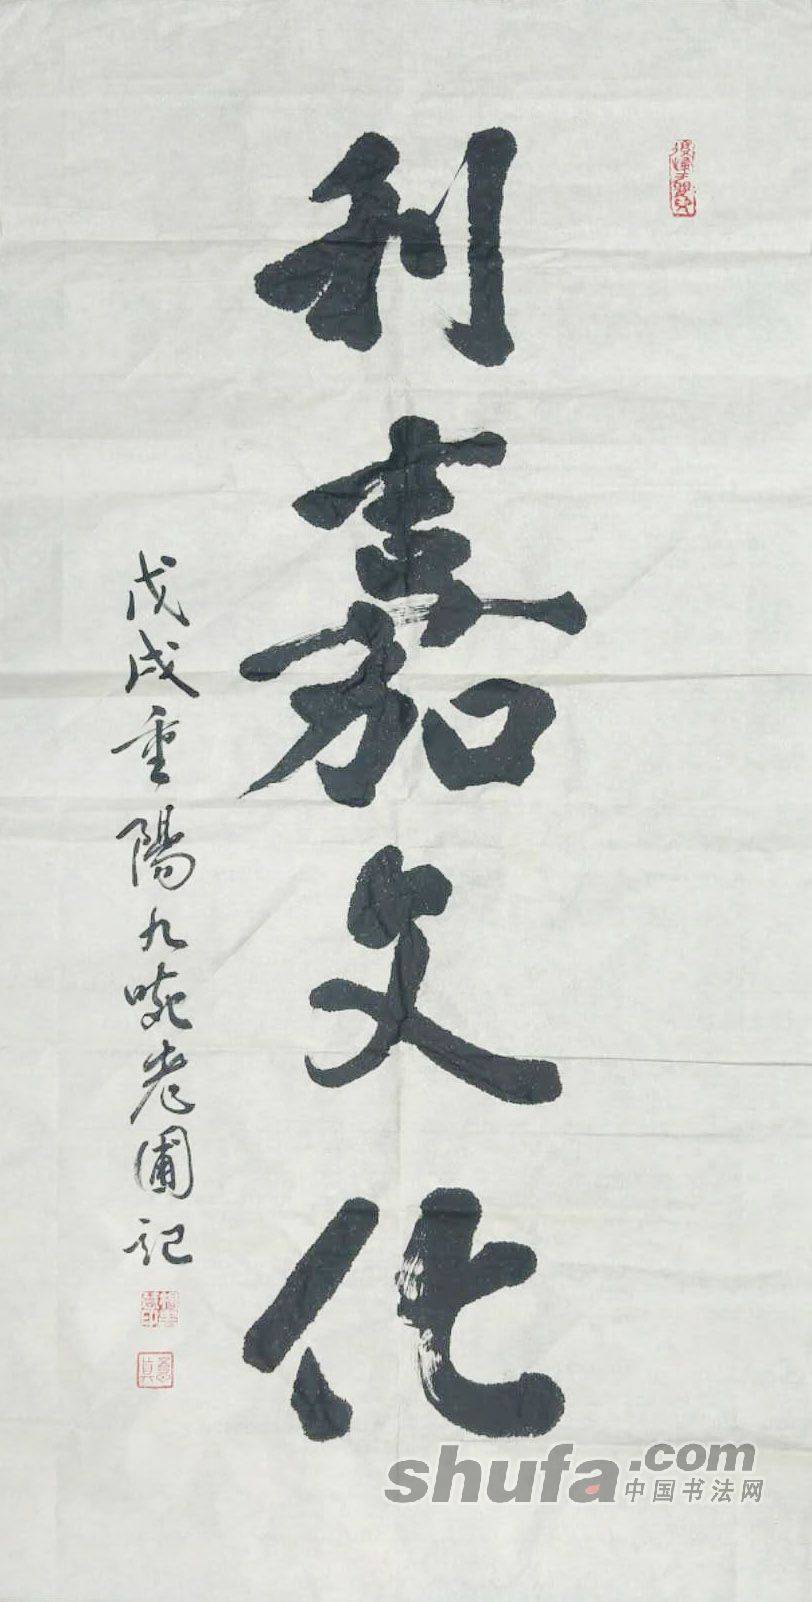 利嘉文化
戊戌重陽九畹老圃記
shufa.com
中国书法网